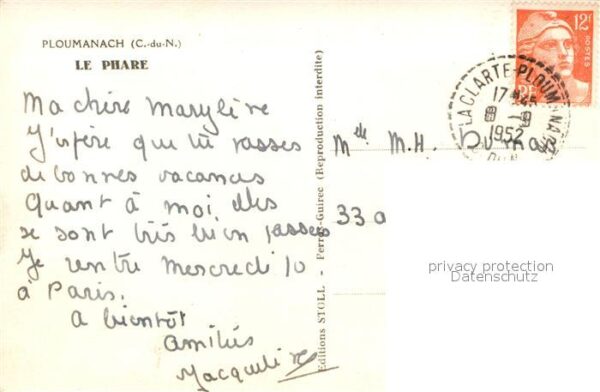 PLOUMANACH (C.-du-N.)
LE PHARE
Ma chère Marylène
J'espère que tu passes
de bonnes vacances
Quant à moi, elles
se sont très bien passées
Je rentre mercredi 10
à Paris.
A bientôt
amitiés
Jacqueline
Editions STOLL. - Perros-Guirec (Reproduction interdite)
12F
POSTES
LA CLARTE-PLOUMANACH
17
1952
Melle M.H.
33
privacy protection
Datenschutz